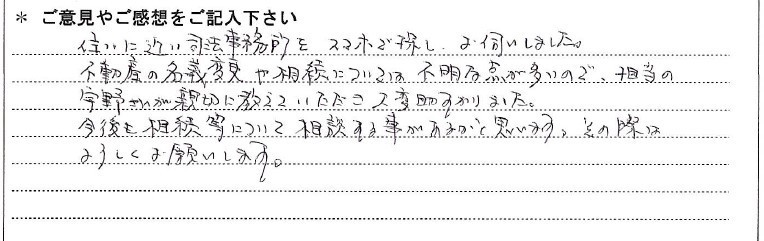 * ご意見やご感想をご記入下さい
住いに近い司法事務所を スマホで探し、お伺いしました。
不動産の名義変更や相続については 不明な点が多いので、担当の
宇野さんが親切に教えていただき大変助かりました。
今後も相続等について 相談する事があるかと思います。その際は
よろしくお願いします。